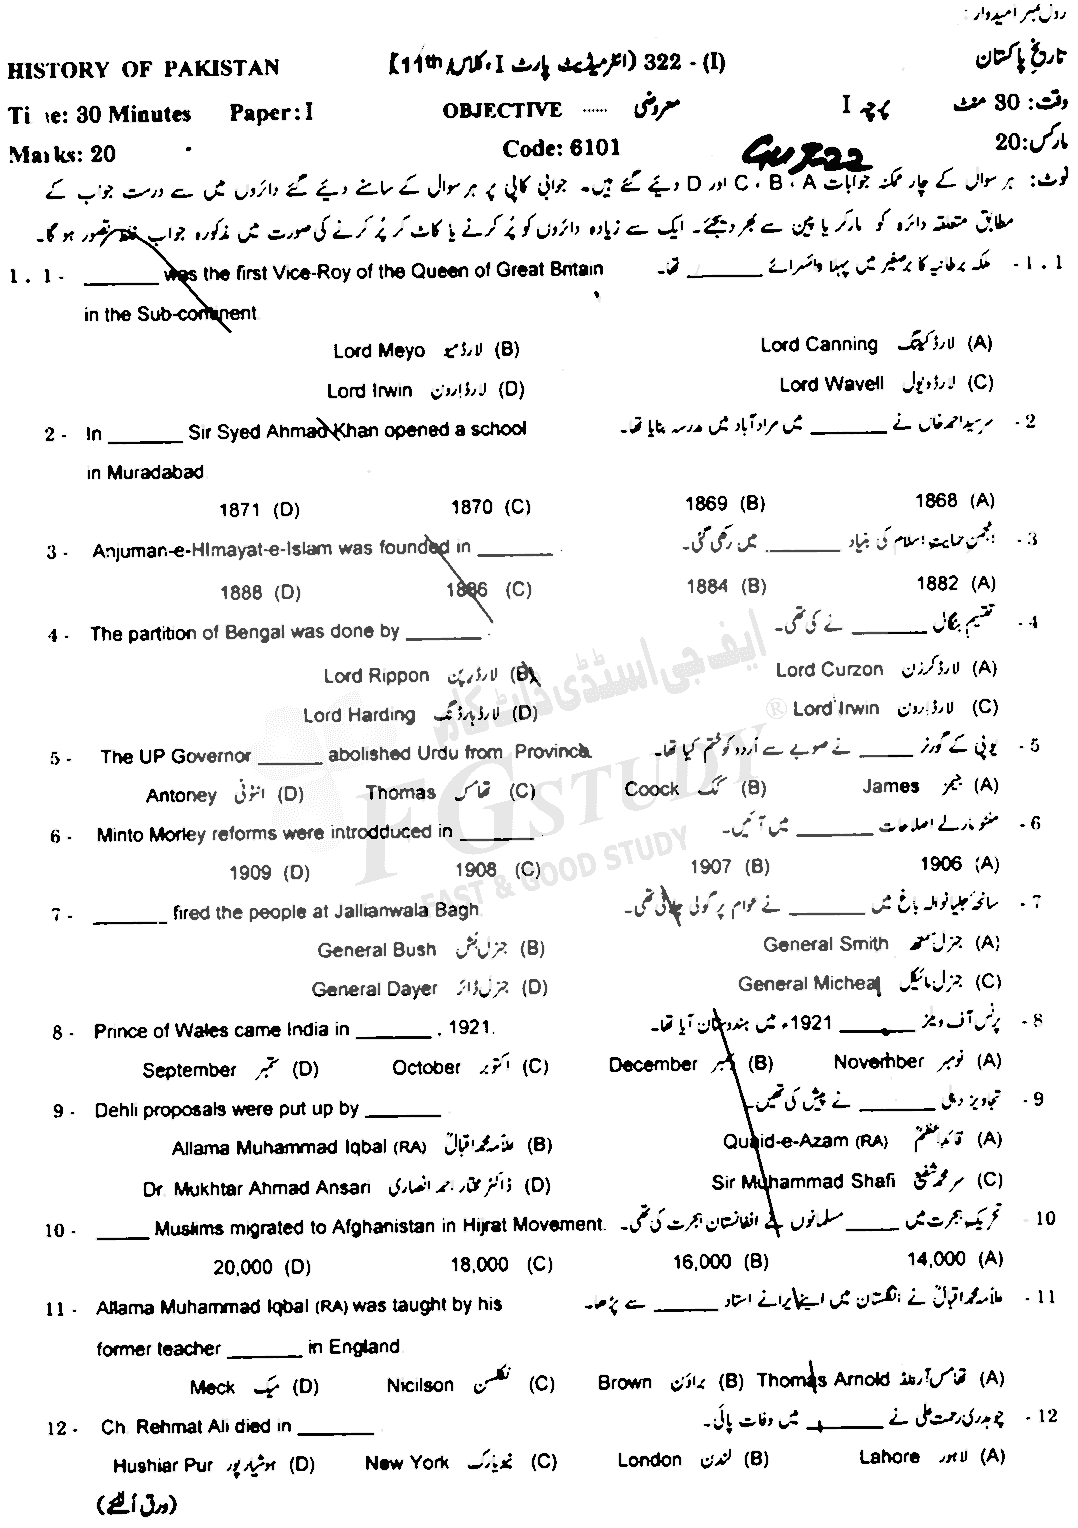 رول نمبر امیدوار :
HISTORY OF PAKISTAN (انٹرمیڈیٹ پارٹ I ، کلاس 11th) 322 - (I) تاریخ پاکستان
Time: 30 Minutes Paper: I OBJECTIVE ...... معروضی پرچہ I وقت: 30 منٹ
Marks: 20 Code: 6101 مارکس: 20
نوٹ: ہر سوال کے چار ممکنہ جوابات A ، B ، C اور D دیئے گئے ہیں۔ جوابی کاپی پر ہر سوال کے سامنے دیئے گئے دائروں میں سے درست جواب کے
مطابق متعلقہ دائرہ کو مارکر یا پین سے بھر دیجئے۔ ایک سے زیادہ دائروں کو پُر کرنے یا کاٹ کر پُر کرنے کی صورت میں مذکورہ جواب غلط تصور ہو گا۔
1 . 1 - ________ was the first Vice-Roy of the Queen of Great Britain ملکہ برطانیہ کا برصغیر میں پہلا وائسرائے ________ تھا۔ - 1 . 1
in the Sub-continent
Lord Meyo لارڈ میو (B) Lord Canning لارڈ کیننگ (A)
Lord Irwin لارڈ ارون (D) Lord Wavell لارڈ ویول (C)
2 - In ________ Sir Syed Ahmad Khan opened a school سرسید احمد خاں نے ________ میں مراد آباد میں مدرسہ بنایا تھا۔ - 2
in Muradabad
1871 (D) 1870 (C) 1869 (B) 1868 (A)
3 - Anjuman-e-HImayat-e-Islam was founded in ________ . انجمن حمایت اسلام کی بنیاد ________ میں رکھی گئی۔ - 3
1888 (D) 1886 (C) 1884 (B) 1882 (A)
4 - The partition of Bengal was done by ________ . تقسیم بنگال ________ نے کی تھی۔ - 4
Lord Rippon لارڈ رپن (B) Lord Curzon لارڈ کرزن (A)
Lord Harding لارڈ ہارڈنگ (D) Lord Irwin لارڈ ارون (C)
5 - The UP Governor ________ abolished Urdu from Province. یوپی کے گورنر ________ نے صوبے سے اردو کو ختم کیا تھا۔ - 5
Antoney انٹونی (D) Thomas تھامس (C) Coock کک (B) James جیمز (A)
6 - Minto Morley reforms were introdduced in ________ . منٹو مارلے اصلاحات ________ میں آئیں۔ - 6
1909 (D) 1908 (C) 1907 (B) 1906 (A)
7 - ________ fired the people at Jallianwala Bagh سانحہ جلیانوالہ باغ میں ________ نے عوام پر گولی چلائی تھی۔ - 7
General Bush جنرل بش (B) General Smith جنرل سمتھ (A)
General Dayer جنرل ڈائر (D) General Micheal جنرل مائیکل (C)
8 - Prince of Wales came India in ________ , 1921. پرنس آف ویلز ________ 1921ء میں ہندوستان آیا تھا۔ - 8
September ستمبر (D) October اکتوبر (C) December دسمبر (B) November نومبر (A)
9 - Dehli proposals were put up by ________ تجاویز دہلی ________ نے پیش کی تھیں۔ - 9
Allama Muhammad Iqbal (RA) علامہ محمد اقبالؒ (B) Quaid-e-Azam (RA) قائداعظمؒ (A)
Dr. Mukhtar Ahmad Ansari ڈاکٹر مختار احمد انصاری (D) Sir Muhammad Shafi سر محمد شفیع (C)
10 - ________ Muslims migrated to Afghanistan in Hijrat Movement. تحریک ہجرت میں ________ مسلمانوں نے افغانستان ہجرت کی تھی۔ - 10
20,000 (D) 18,000 (C) 16,000 (B) 14,000 (A)
11 - Allama Muhammad Iqbal (RA) was taught by his علامہ محمد اقبالؒ نے انگلستان میں اپنے پرانے استاد ________ سے پڑھا۔ - 11
former teacher ________ in England
Meck میک (D) Nicilson نکلسن (C) Brown براؤن (B) Thomas Arnold تھامس آرنلڈ (A)
12 - Ch. Rehmat Ali died in ________ چوہدری رحمت علی نے ________ میں وفات پائی۔ - 12
Hushiar Pur ہوشیار پور (D) New York نیویارک (C) London لندن (B) Lahore لاہور (A)
(ورق الٹیے)
ایف جی اسٹڈی ڈاٹ کام
FGSTUDY ®
FAST & GOOD STUDY